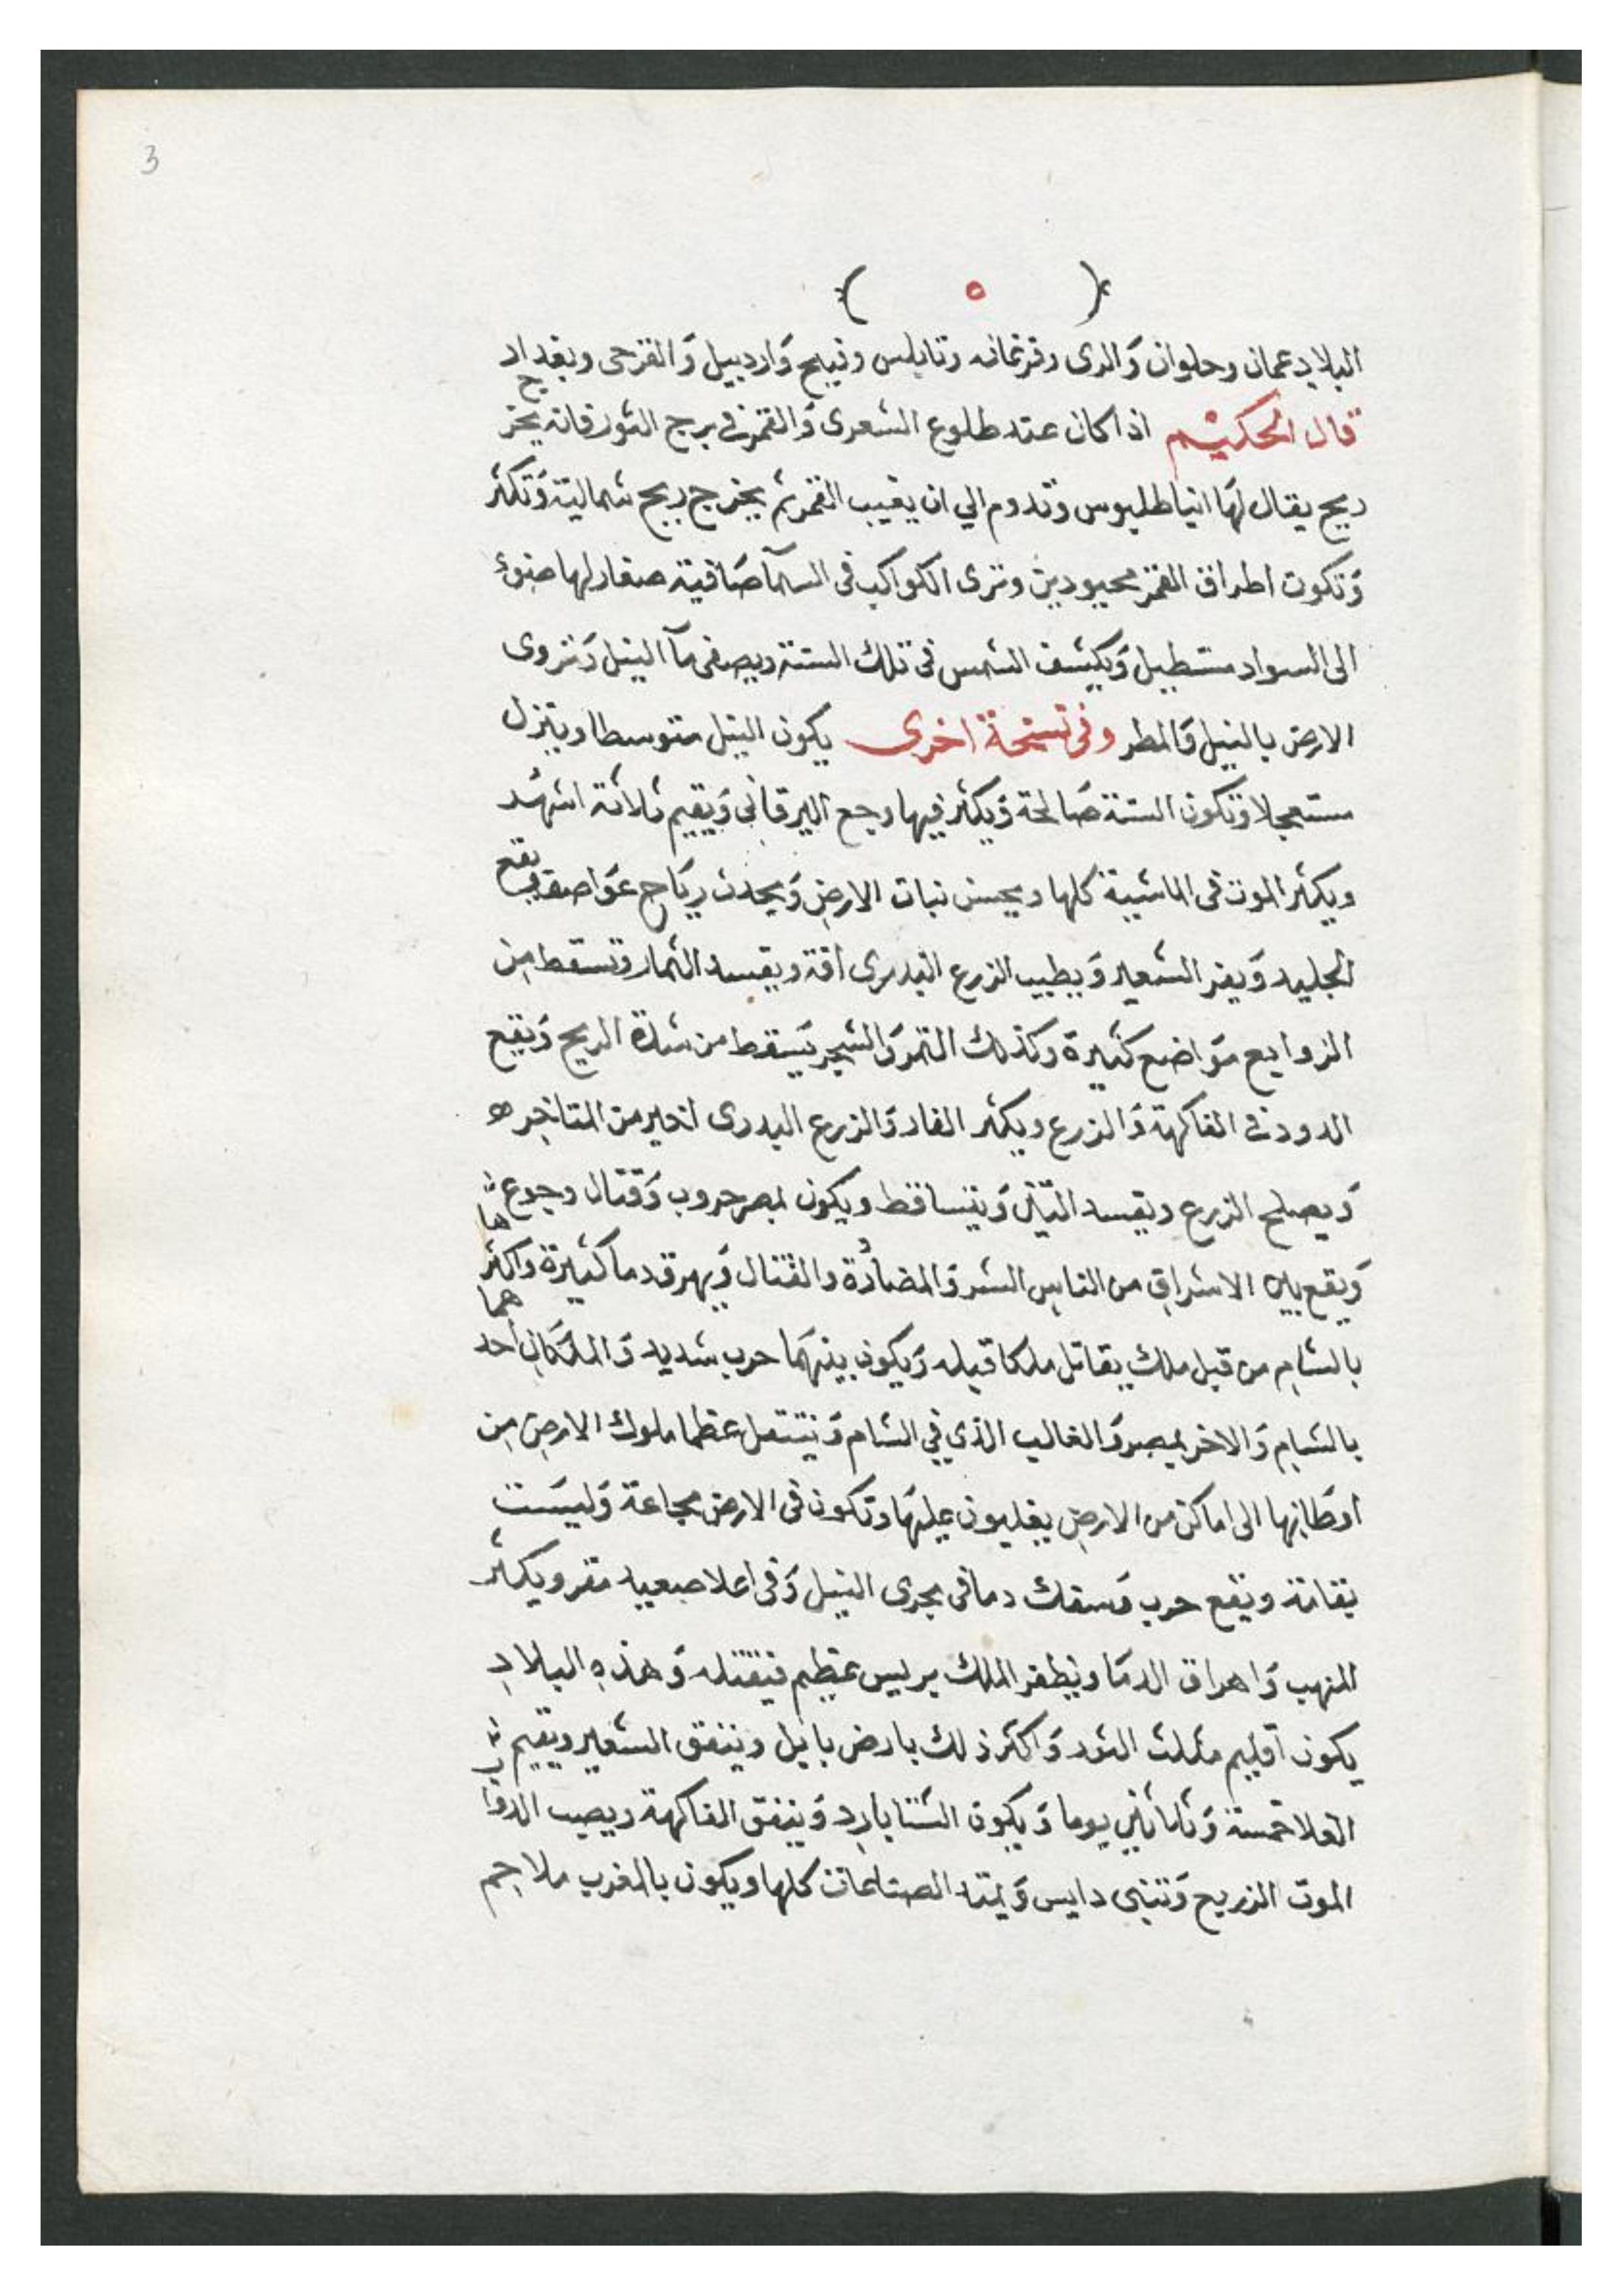 3
( ٥ )
البلاد عمان وحلوان والرى وفرغانه ونابلس وذيبح واردبيل والقزحى وبغداد
قال الحكيم اذا كان عند طلوع الشعرى والقمر فى برج الثور فانه يخرج
ريح يقال لها انياطليوس وتدوم الي ان يغيب القمر ثم يخرج ريح شمالية وتكثر
وتكون اطراف القمر محيودين وترى الكواكب فى السمآ صافية صغار لها ضوء
الى السواد مستطيل ويكشف الشمس فى تلك السنة ويصفى مآ النيل وتروى
الارض بالنيل والمطر وفى نسخة اخرى يكون النيل متوسطا وينزل
مستعجلا وتكون السنة صالحة ويكثر فيها وجع اليرقانى ويقيم ثلاثة اشهد
ويكثر الموت فى الماشية كلها ويحسن نبات الارض ويحدث رياح عواصف يقع
الجليد ويفز الشعير ويطيب الزرع البدرى افة ويفسد الثمار وتسقط من
الزوابع مواضع كثيرة وكذلك الثمر والشجر يسقط من شدة الريح ويقع
الدود فى الفاكهة والزرع ويكثر الفار والزرع البدرى اخير من المتاخر ه
ويصلح الزرع ويفسد التين ويتساقط ويكون بمصر حروب وقتال وجوع
ويقع بين الاشراف من الناس الشر والمضاددة والقتال ويهرق دما كثيرة واكثرها
بالشام من قبل ملك يقاتل ملكا قبله ويكون بينهما حرب شديد والملكان احدهما
بالشام والاخر بمصر والغالب الذي في الشام وينتقل عظما ملوك الارض من
اوطانها الى اماكن من الارض يغلبون عليها وتكون فى الارض مجاعة وليست
بقاتة وتقع حرب وسفك دما فى مجرى النيل وفى اعلا صعيد مصر ويكثر
النهب واهراق الدما ويظفر الملك بريس عظيم فيقتله وهذه البلاد
يكون اقليم مثلث الثور واكثر ذلك بارض بابل وينفق الشعير ويقيم
الغلا خمسة وثلاثين يوما ويكون الشتا بارد وينفق الفاكهة ويصيب الدواب
الموت الزريع وتبنى دايس ويمتد الصالحات كلها ويكون بالمغرب ملاحم